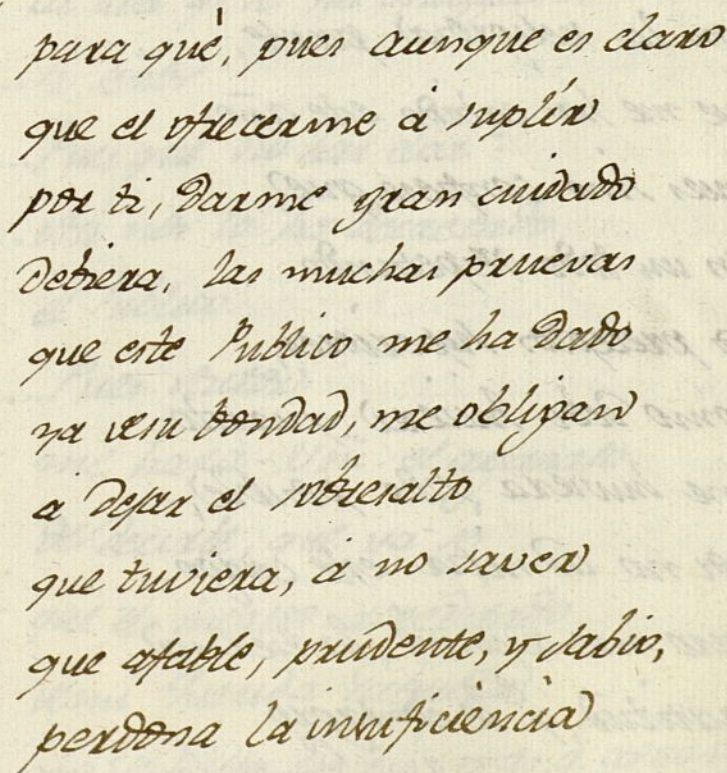 para què, pues aunque es claro
que el ofrecerme à suplir
por ti, darme gran cuidado
debiera, las muchas pruevas
que este Publico me ha dado
ya de su bondad, me obligan
à dejar el sobresalto
que tuviera, à no saver
que afable, prudente, y sabio,
perdona la insuficiencia